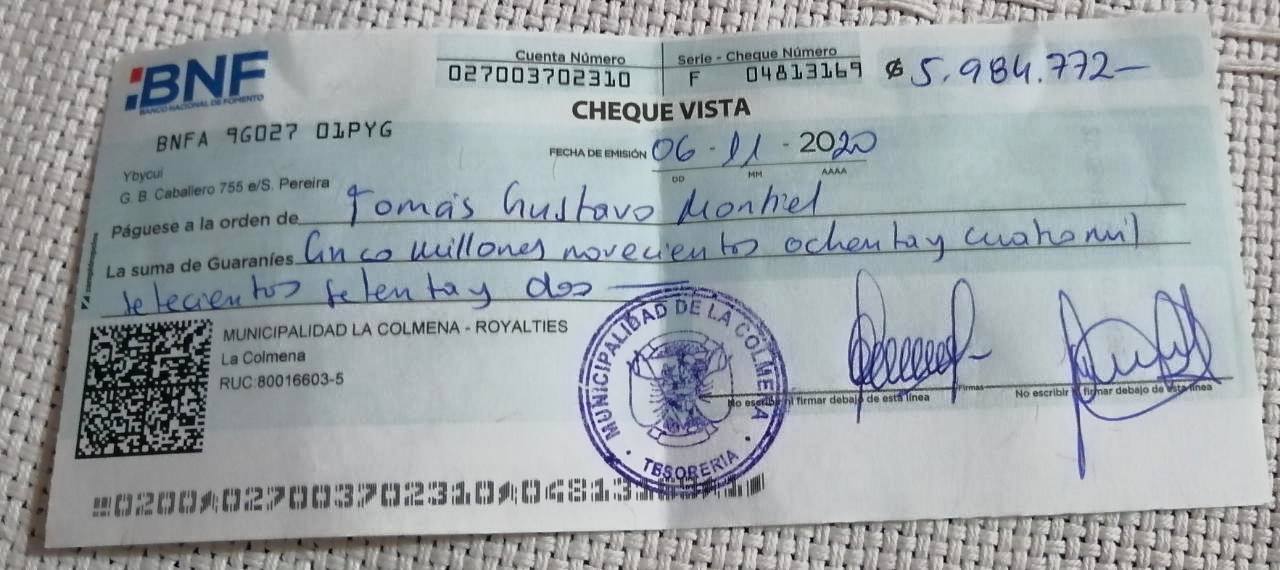 BNF
BANCO NACIONAL DE FOMENTO
Cuenta Número
027003702310
Serie - Cheque Número
F 04813169
₲ 5.984.772—
CHEQUE VISTA
BNFA 9G027 01PYG
FECHA DE EMISIÓN 06 - 11 - 2020
DD MM AAAA
Ybycui
G. B. Caballero 755 e/S. Pereira
Páguese a la orden de Tomás Gustavo Montiel
La suma de Guaraníes Cinco millones novecientos ochenta y cuatro mil
setecientos setenta y dos —
MUNICIPALIDAD LA COLMENA - ROYALTIES
La Colmena
RUC:80016603-5
MUNICIPALIDAD DE LA COLMENA
TESORERIA
Firmas
No escribir ni firmar debajo de esta línea
No escribir ni firmar debajo de esta línea